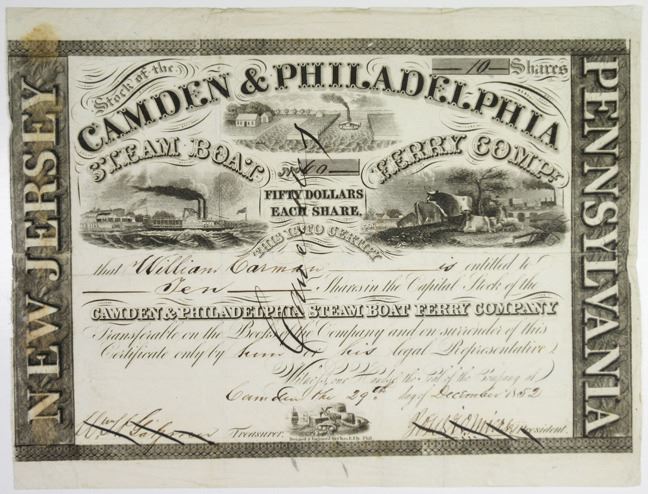 NEW JERSEY
PENNSYLVANIA
10 Shares
Stock of the
CAMDEN & PHILADELPHIA
STEAM BOAT FERRY COMPY.
No. 40
FIFTY DOLLARS
EACH SHARE.
THIS IS TO CERTIFY
that William Carman is entitled to
Ten Shares in the Capital Stock of the
CAMDEN & PHILADELPHIA STEAM BOAT FERRY COMPANY
Transferable on the Books of the Company and on surrender of this
Certificate only by him or his legal Representative
Witness our Hands the Seal of the Company at
Camden the 29th day of December 1852
Treasurer. President.